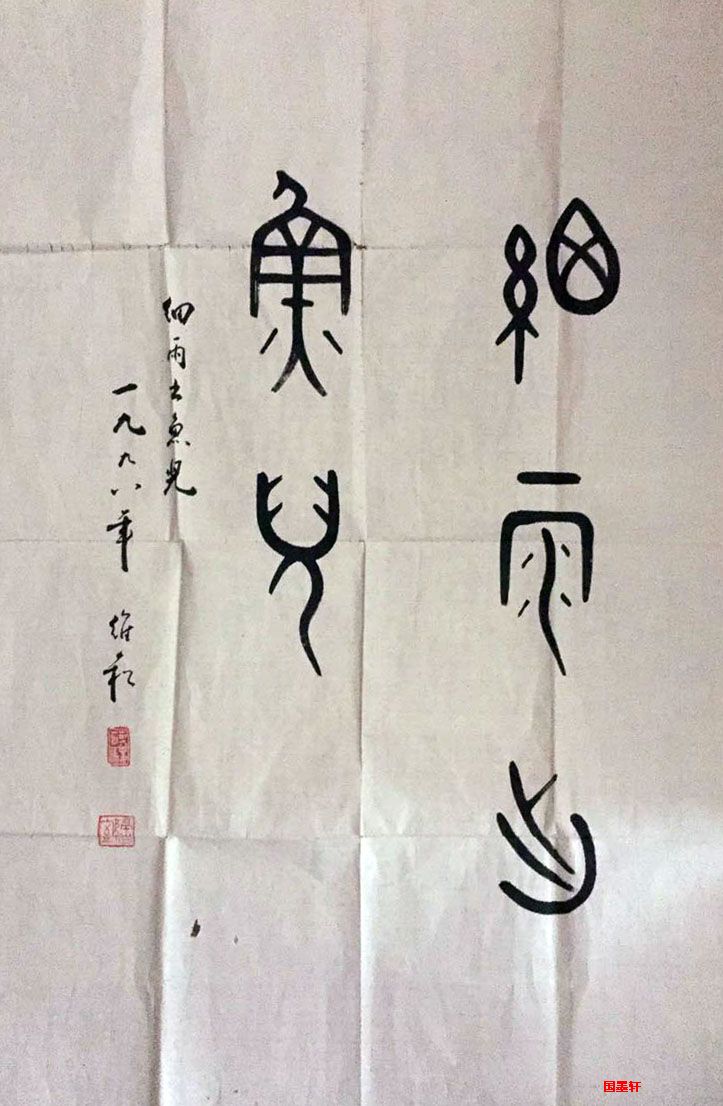 细雨出
鱼儿
細雨出魚兒
一九九八年 維和
国墨轩